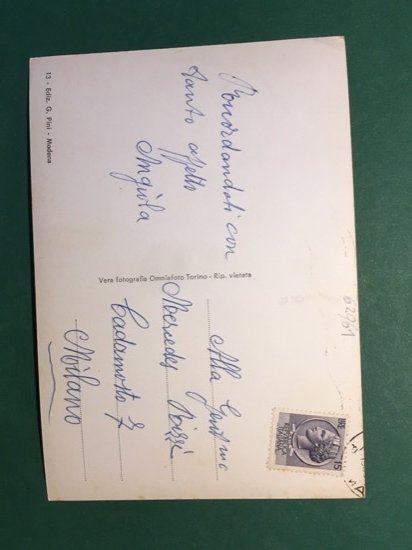 Ricordandoti con
tanto affetto
Angiola
13 - Ediz. G. Pini - Modena
Vera fotografia Omniafoto Torino - Rip. vietata
Alla Gent.ma
Mercedes
Cadamosto 7
Milano
62961
15